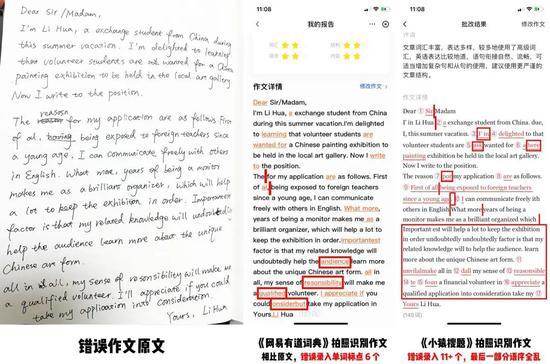 Dear Sir/Madam,
I'm Li Hua, a exchange student from China, during
this summer vacation. I'm delighted to learning
that volunteer students are wanted for a Chinese
painting exhibition to be held in the local art gallery
Now I write to the position.
The reason for my application are as follows First
of all, being exposed to foreign teachers since
a young age, I can communicate freely with others
in English. What more, years of being a monitor
makes me as a brilliant organizer, which will help
a lot to keep the exhibition in order. Important
factor is that my related knowledge will undoubtedly
help the audience learn more about the unique
Chinese art form.
all in all, my sense of resonsibility will make me
a qualified volunteer. I'll appreciate if you could
take my application into consideration.
Yours, Li Hua
错误作文原文
我的报告
词汇
结构
作文详情
修改作文
Dear Sir/Madam,
I'm Li Hua, a exchange student from China
during this summer vacation.I'm delighted
to learning that volunteer students are
wanted for a Chinese painting exhibition to
be held in the local art gallery. Now I write
to the position.
The for my application are as follows. First
of al being exposed to foreign teachers
since a young age, I can communicate
freely with others in English. What more,
years of being a monitor makes me as a
brilliant organizer, which will help a lot to
keep the exhibition in order.
importantest
factor is that my related knowledge will
undoubtedly help the audience learn more
about the unique Chinese art form. all in
all, my sense of reosonsibility will make me
a qualified volunteer. I appreciate if you
could onsiderbut take my application into
《网易有道词典》拍照识别作文
相比原文,错误录入单词标点 6 个
批改结果
文章词汇丰富,表达多样,较多地使用了高级词
汇,英语表达比较地道,语句衔接自然、流畅,可
适当增加复杂句和从句的使用,建议使用更严谨的
文章结构。
作文详情
修改作文
Dear ① Sir Madam
I'm Li Hua ② a exchange student from China. due,
I, this summer vacation. ③ I' in ④ delighted to
that volunteer students ⑤ ask wanted for ⑥ a here
painting exhibition to be held in the local art gallery.
Now I write to the position.
The reason ⑦ por my application ⑧ are as follows.
⑨ First of all being exposed to foreign teachers
since a young age I can communicate freely ith
others in English What more years of being a
monitor makes me as a brilliant organizer which
Important est will help a lot to keep the exhibition
in order undoubtedly undoubtedly factor is that my
related knowledge will help to the audience. learn
more about the unique Chinese art form. ⑪
unvilmalke all in ⑫ dall my sense of ⑬ resonsible
⑭ to fe a qualified volunteer. I' ⑮ ill ⑯ appreciate a
qualified application into consideration take my ⑰
Yours Li Hua
《小猿搜题》拍照识别作文
错误录入 11+ 个,最后一部分语序全乱